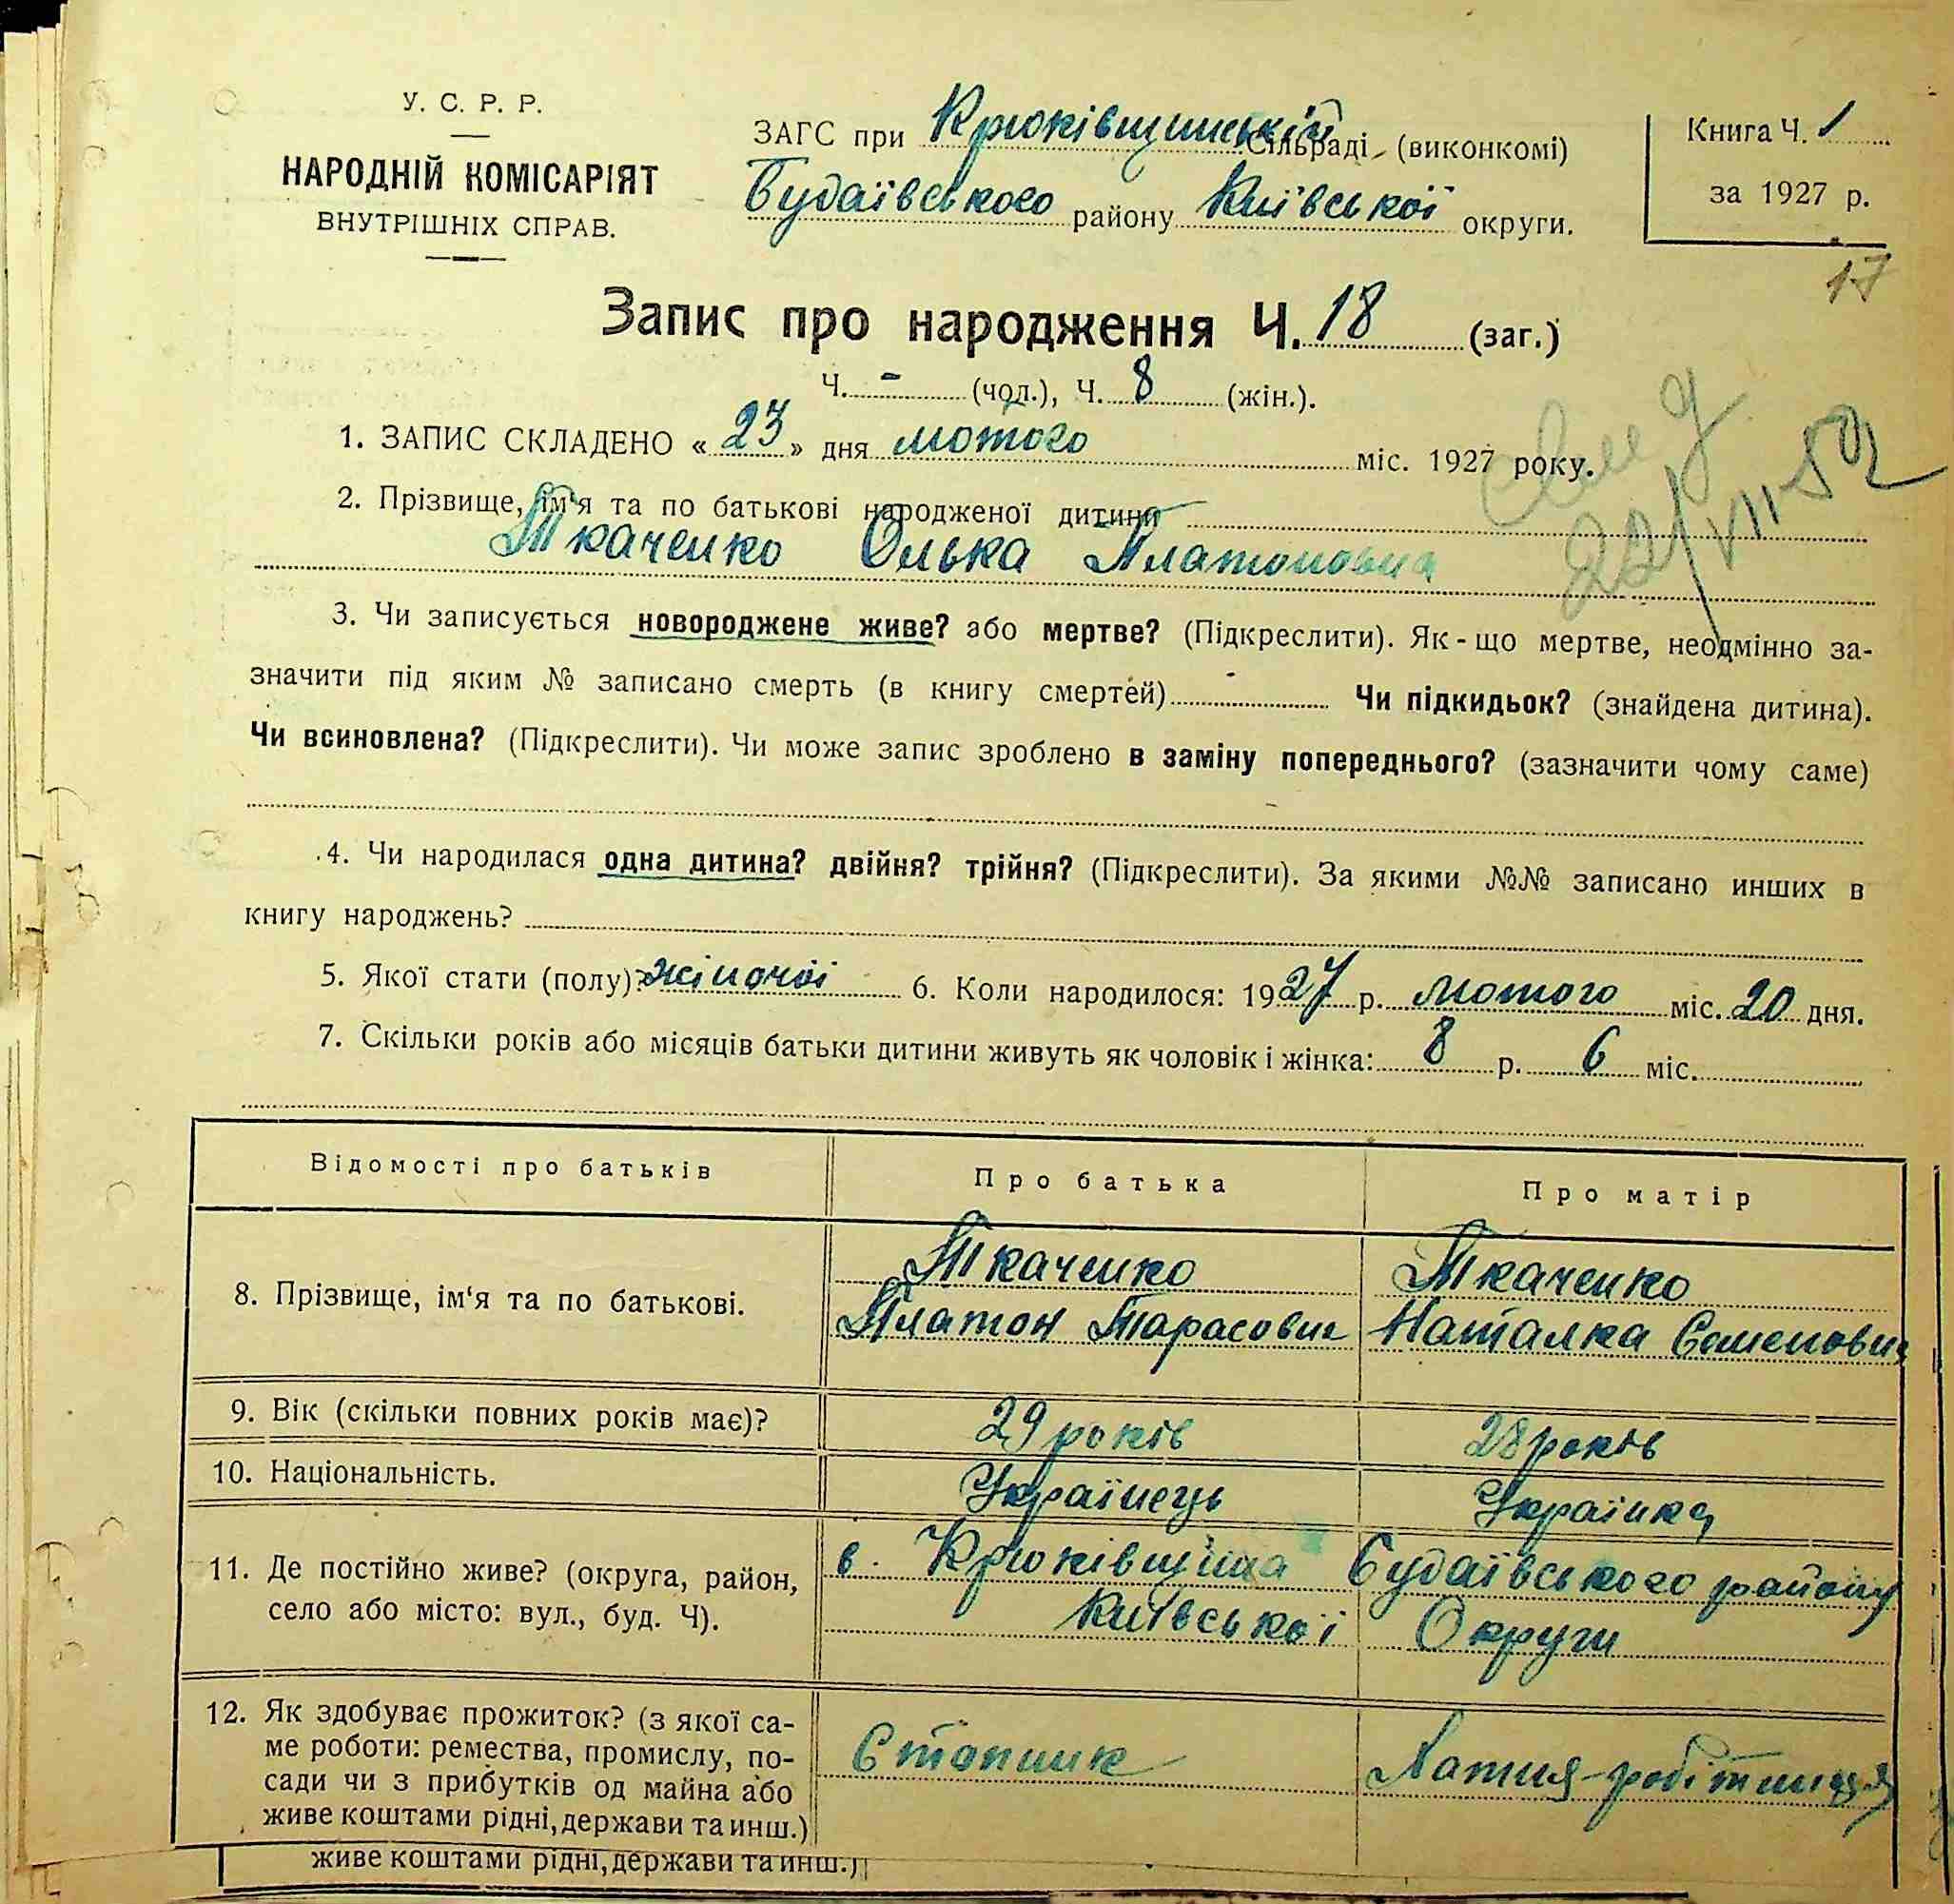 У. С. Р. Р.
НАРОДНІЙ КОМІСАРІЯТ
ВНУТРІШНІХ СПРАВ.
ЗАГС при Крюківщинській Сільраді, (виконкомі)
Будаївського району Київської округи.
Книга Ч. 1
за 1927 р.
17
Запис про народження Ч. 18 (заг.)
Ч. - (чол.), Ч. 8 (жін.).
1. ЗАПИС СКЛАДЕНО « 23 » дня лютого міс. 1927 року.
22/VII 52
2. Прізвище, ім‘я та по батькові народженої дитини
Ткаченко Олька Платоновна
3. Чи записується новороджене живе? або мертве? (Підкреслити). Як-що мертве, неодмінно за-
значити під яким № записано смерть (в книгу смертей) - Чи підкидьок? (знайдена дитина).
Чи всиновлена? (Підкреслити). Чи може запис зроблено в заміну попереднього? (зазначити чому саме)
4. Чи народилася одна дитина? двійня? трійня? (Підкреслити). За якими №№ записано инших в
книгу народжень?
5. Якої стати (полу)? жіночої 6. Коли народилося: 1927 р. лютого міс. 20 дня.
7. Скільки років або місяців батьки дитини живуть як чоловік і жінка: 8 р. 6 міс.
Відомості про батьків Про батька Про матір
Ткаченко Ткаченко
8. Прізвище, ім‘я та по батькові. Платон Тарасович Наталка Семеновна
9. Вік (скільки повних років має)? 29 років 28 років
10. Національність. Українець Українка
11. Де постійно живе? (округа, район, в. Крюківщина Будаївського району
село або місто: вул., буд. Ч). Київської Округи
12. Як здобуває прожиток? (з якої са-
ме роботи: ремества, промислу, по- Хатня-робітниця
сади чи з прибутків од майна або
живе коштами рідні, держави та инш.)
живе коштами рідні, держави та инш.)